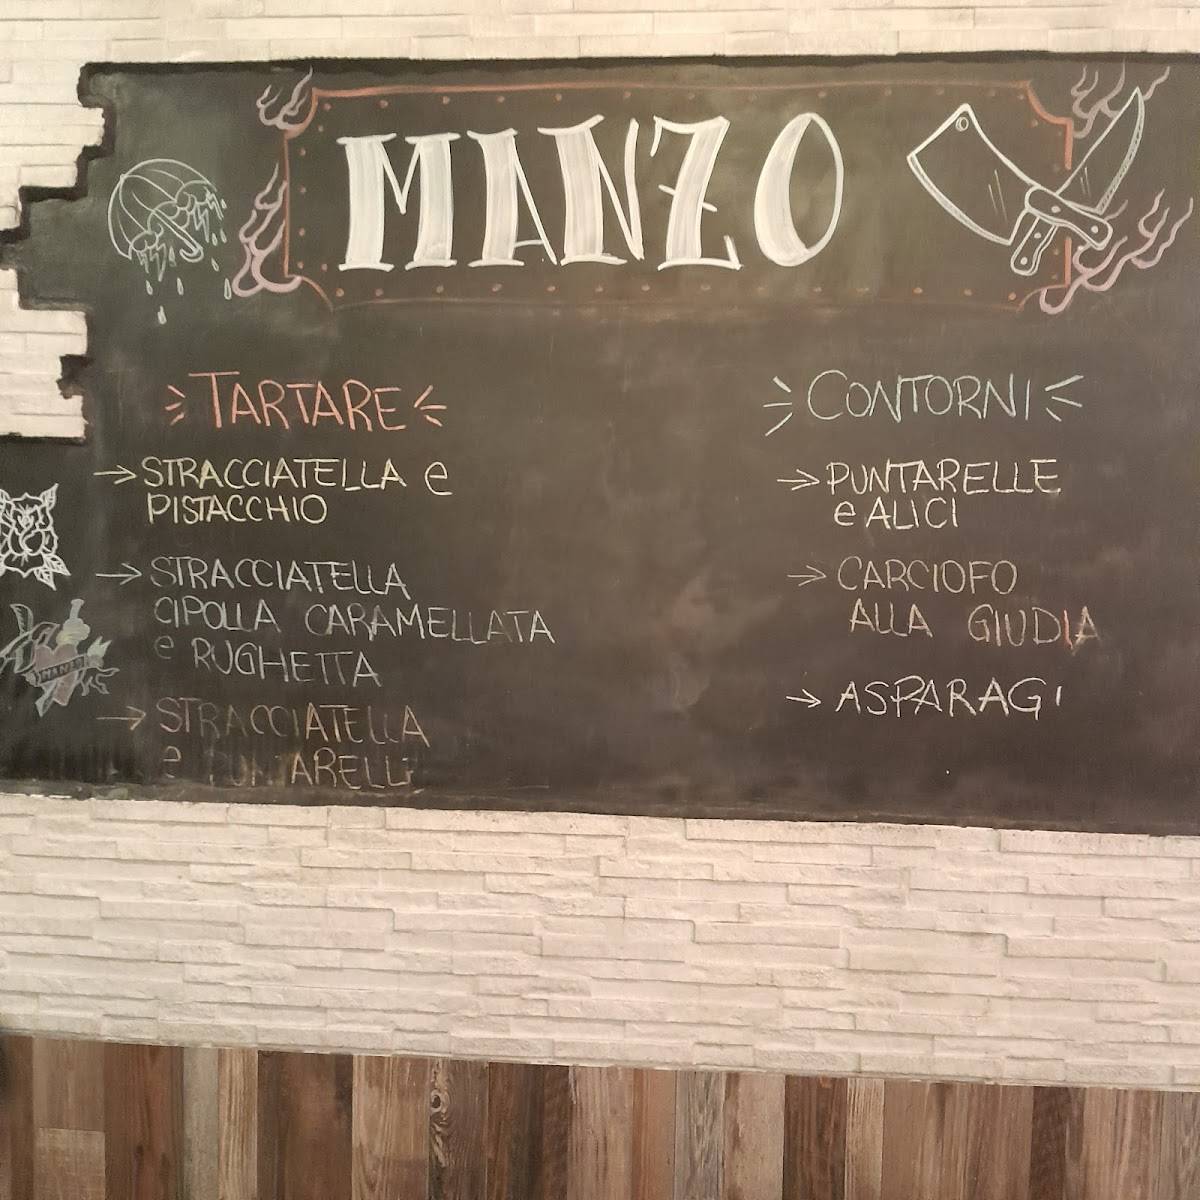 MANZO
TARTARE
→ STRACCIATELLA e
PISTACCHIO
→ STRACCIATELLA
CIPOLLA CARAMELLATA
e RUGHETTA
→ STRACCIATELLA
e PUNTARELLE
CONTORNI
→ PUNTARELLE
e ALICI
→ CARCIOFO
ALLA GIUDIA
→ ASPARAGI
MANZO